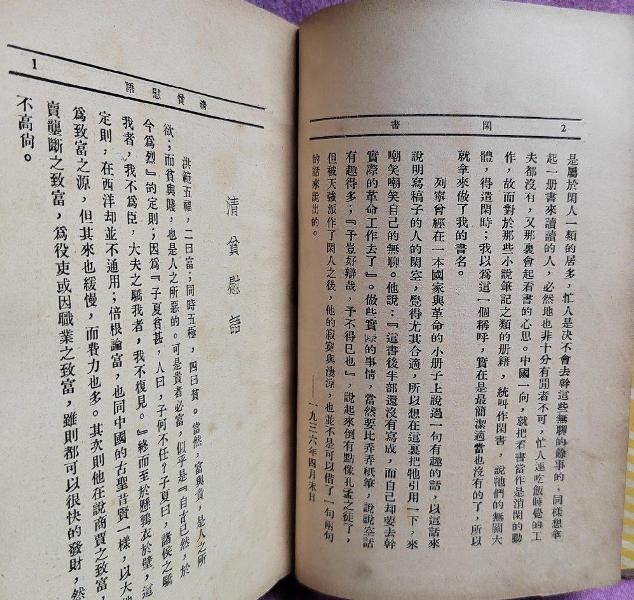 閑書 2
是屬於閑人一類的居多，忙人是決不會去幹這些無聊的餘事的，同樣想拿
起一册書來讀讀的人，必然地也非十分有閒者不可，忙人連吃飯睡覺的工
夫都沒有，又那裏會起看書的心思。中國一向，就把看書當作是消閑的動
作，故而對於那些小說筆記之類的册籍，統叫作閑書，說他們的無關大
體，得遣閑時；我以爲這一個稱呼，實在是最簡潔適當也沒有的了，所以
就拿來做了我的書名。
列寧曾經在一本國家與革命的小册子上說過一句有趣的話，以這話來
說明寫稿子的人的閑空，覺得尤其合適，所以想在這裏把牠引用一下，來
嘲笑嘲笑自己的無聊。他說：『這書後半部還沒有寫成，而自己却要去幹
實際的革命工作去了』。做些實際的事情，當然要比弄弄紙筆，說說空話
有趣得多；『予豈好辯哉，予不得已也』，說起來倒有點像孔孟之徒了，
但被天強派作了閑人之後，他的寂寞與淒凉，也並不是可以借了一句兩句
的話來說出的。
——一九三六年四月末日
清貧慰語 1
清貧慰語
洪範五福，二曰富；同時五極，四曰貧。當然，富與貴，是人之所
欲；而貧與賤，也是人之所惡的。可是貴者必富，似乎是『自古已然，於
今爲烈』的定則；因爲『子夏貧甚，人曰，子何不仕？子夏曰，諸侯之驕
我者，我不爲臣，大夫之驕我者，我不復見。』終而至於懸鶉衣於壁，這
定則，在西洋却並不通用；倍根論富，也同中國的古聖昔賢一樣，以大地
爲致富之源，但其來也緩慢，而費力也多。其次則他在說商賈之致富，
賣壟斷之致富，爲役吏或因職業之致富，雖則都可以很快的發財，然
不高尙。